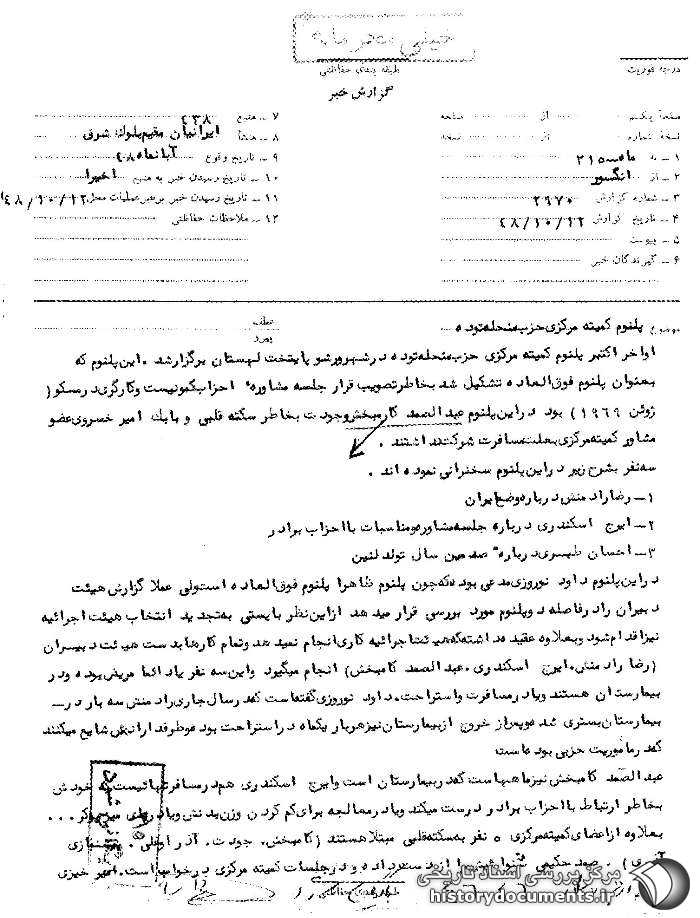 خیلی محرمانه
درجه فوریت
طبقه بندی حفاظتی
گزارش خبر
صفحه یکم از صفحه
نسخه شماره از نسخه
۱ ـ به ۳۱۵
۲ ـ از انگسور
۳ ـ شماره گزارش ۲۹۷۰
۴ ـ تاریخ گزارش ۴۸/۱۰/۱۲
۵ ـ پیوست
۶ ـ گیرندگان خبر
۷ ـ منبع ۴۳۸
۸ ـ منشأ ایرانیان مقیم بلوک شرق
۹ ـ تاریخ وقوع آبانماه ۴۸
۱۰ ـ تاریخ رسیدن خبر به منبع اخیرا
۱۱ ـ تاریخ رسیدن خبر برهبر عملیات محل ۴۸/۱۰/۱۲
۱۲ ـ ملاحظات حفاظتی
موضوع پلنوم کمیته مرکزی حزب منحله توده
عطف
پیرو
اواخر اکتبر پلنوم کمیته مرکزی حزب منحله توده در شهر ورشو پایتخت لهستان برگزار شد . این پلنوم که
بعنوان پلنوم فوق العاده تشکیل شد بخاطر تصویب قرار جلسه مشاوره احزاب کمونیست و کارگری در مسکو (
ژوئن ۱۹۶۹) بود در این پلنوم عبدالصمد کامبخش وجودت بخاطر سکته قلبی و بابک امیر خسروی عضو
مشاور کمیته مرکزی بعلت مسافرت شرکت نداشتند .
سه نفر بشرح زیر در این پلنوم سخنرانی نموده اند .
۱ ـ رضا رادمنش درباره وضع ایران
۲ ـ ایرج اسکندری درباره جلسه مشاوره و مناسبات با احزاب برادر
۳ ـ احسان طبری درباره صدمین سال تولد لنین
در این پلنوم داود نوروزی مدعی بوده که چون پلنوم ظاهرا پلنوم فوق العاده است ولی عملا گزارش هیئت
دبیران را در فاصله دو پلنوم مورد بررسی قرار میدهد از این نظر بایستی به تجدید انتخاب هیئت اجرائیه
نیز اقدام شود و بعلاوه عقیده داشته که هیئت اجرائیه کاری انجام نمیدهد و تمام کارها بدست هیئت دبیران
(رضا رادمنش . ایرج اسکندری . عبدالصمد کامبخش) انجام میگیرد و این سه نفر یا دائما مریض بوده و در
بیمارستان هستند و یا در مسافرت و استراحت . داود نوروزی گفته است که در سال جاری رادمنش سه بار در ـ
بیمارستان بستری شده و پس از خروج از بیمارستان نیز هر بار یکماه در استراحت بوده و طرفدارانش شایع میکنند
که در ماموریت حزبی بوده است
عبدالصمد کامبخش نیز ماههاست که در بیمارستان است و ایرج اسکندری هم در مسافرتهائیست که خودش
بخاطر ارتباط با احزاب برادر درست میکند و یا در معالجه برای کم کردن وزن بدنش و یا
بعلاوه از اعضای کمیته مرکزی ۵ نفر به سکته قلبی مبتلا هستند (کامبخش . جودت . آذر اوغلی .
صمد حکیمی شنوائیش را از دست داده و در جلسات کمیته مرکزی در خواب است . امیر خیزی
طبقه بندی حفاظتی
مرکز بررسی اسناد تاریخی
historydocuments.ir